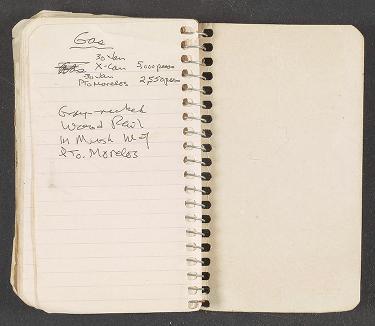 Gas
30 Jan
X-Can 5,000 pesos
30 Jan
Pto Morelos 2,550 pesos
Gray-necked
Wood Rail
in Marsh W of
Pto. Morelos